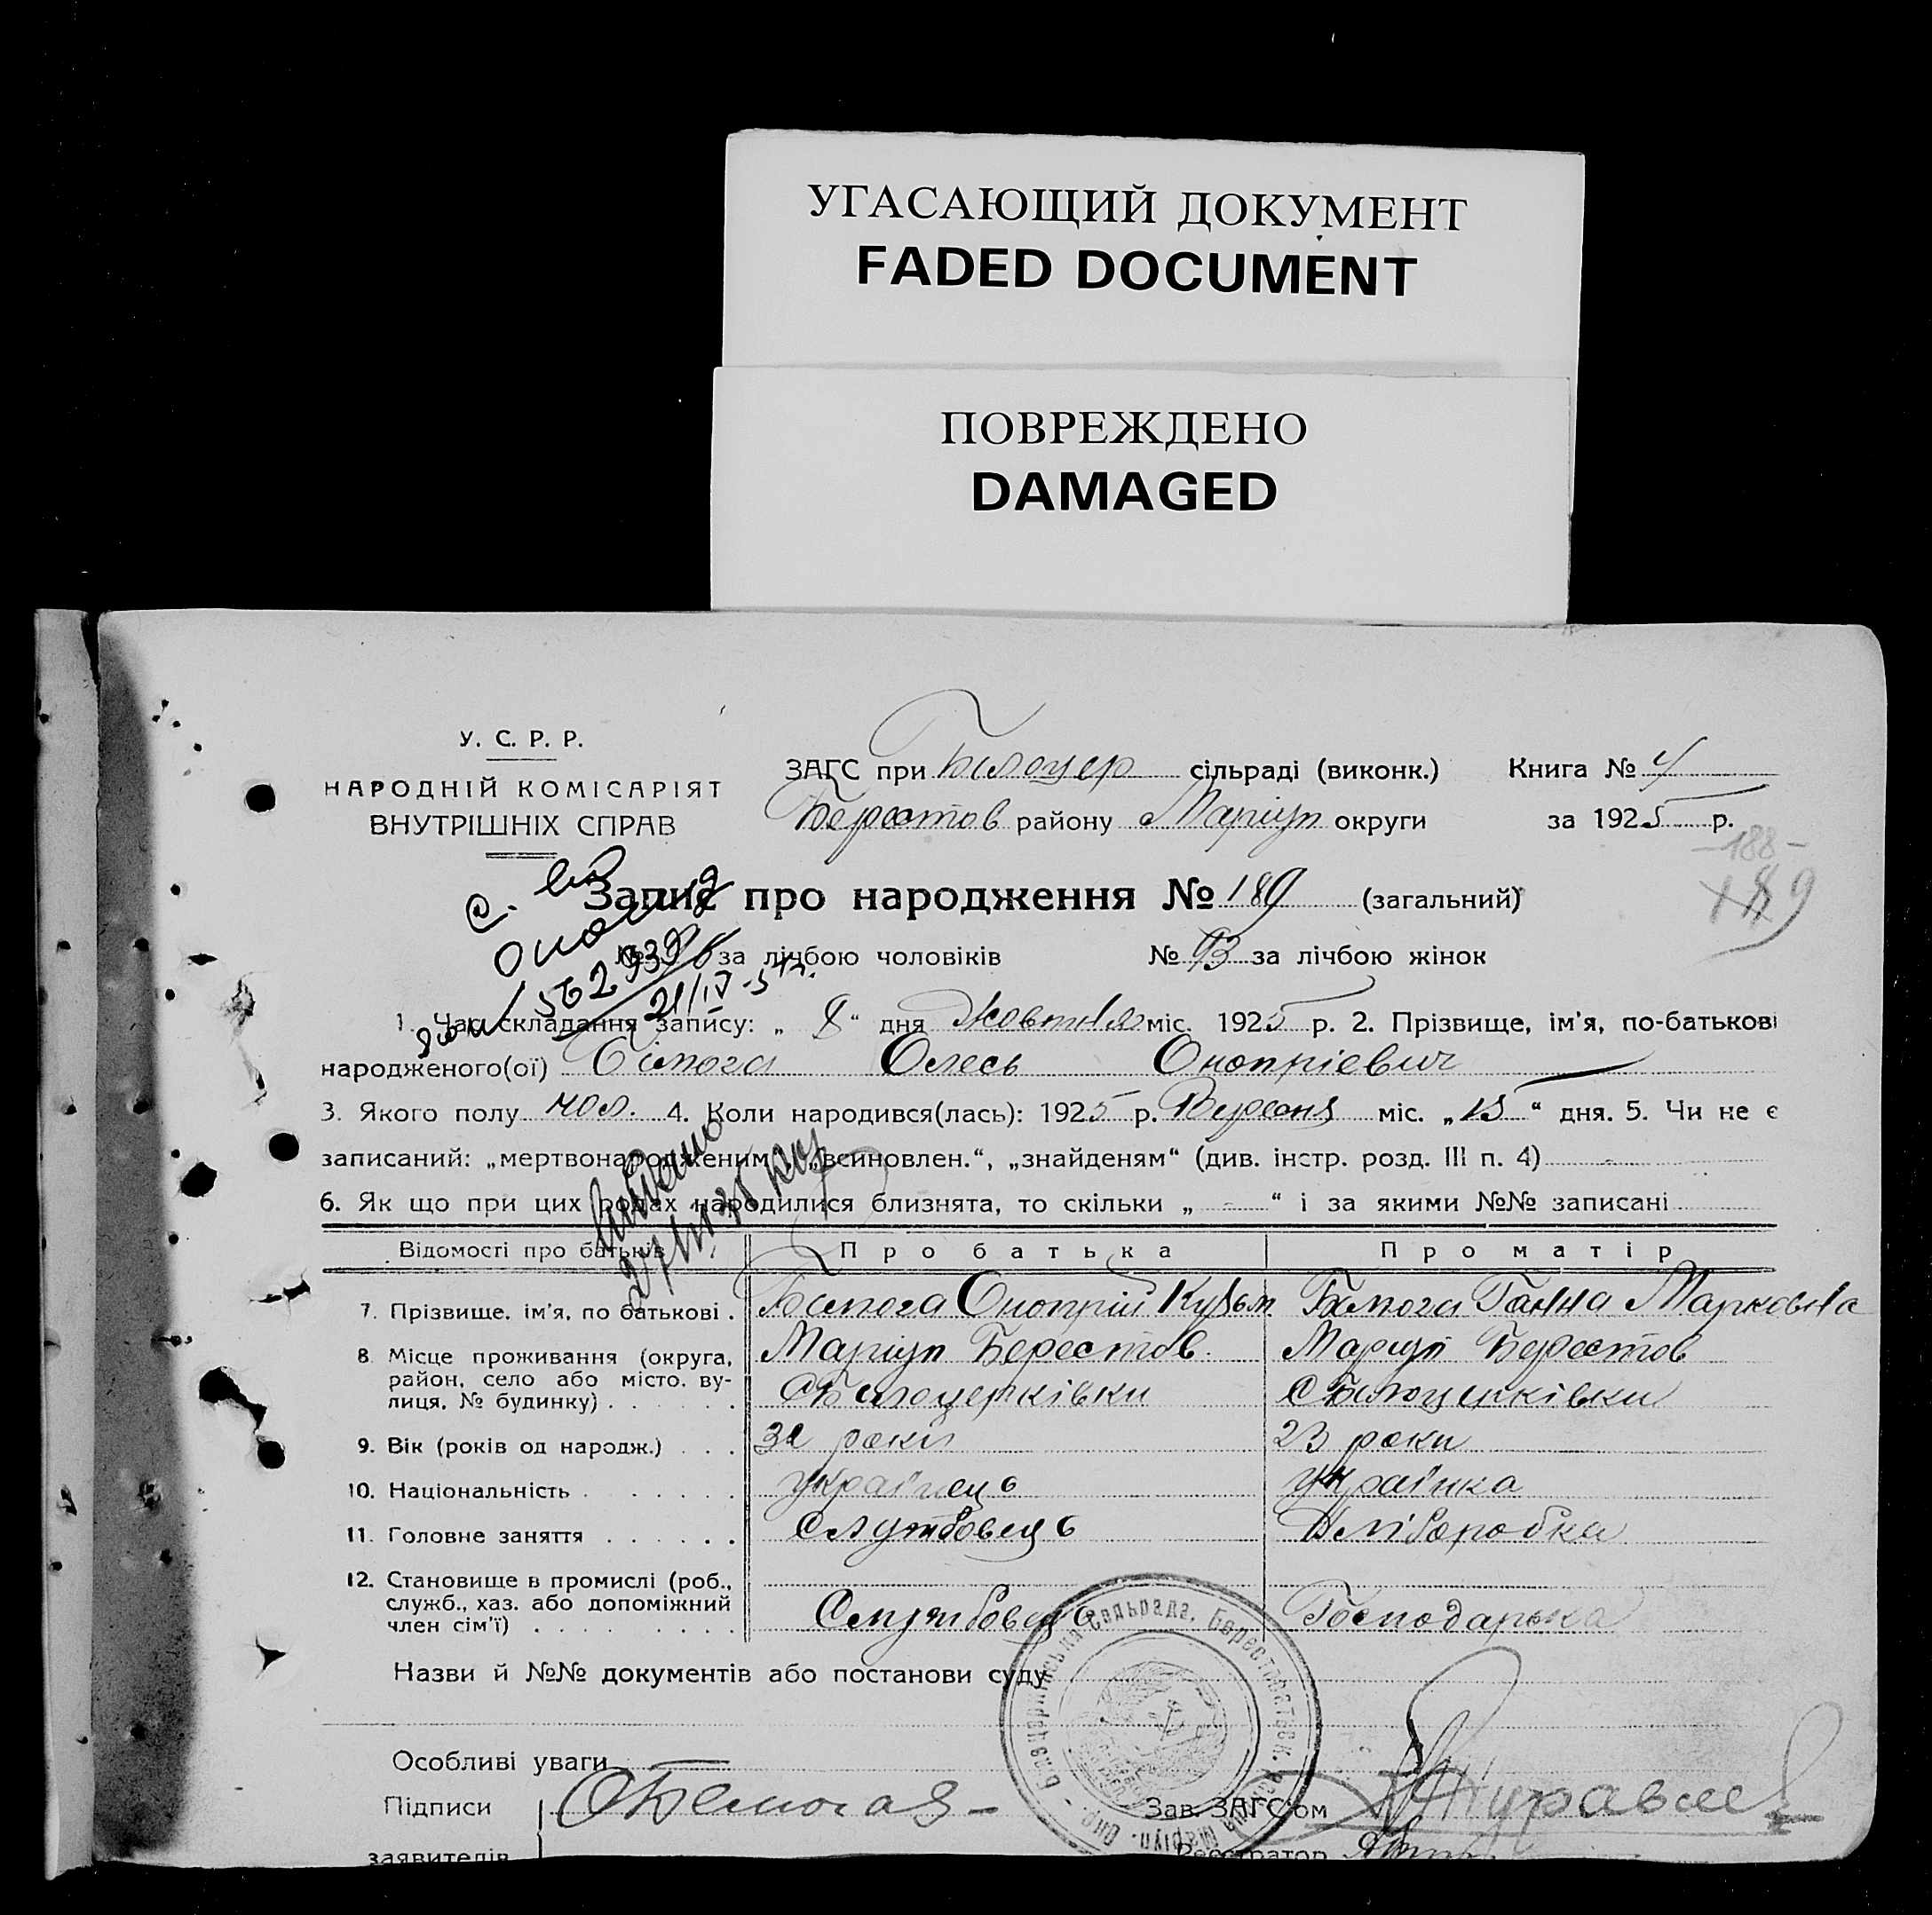 УГАСАЮЩИЙ ДОКУМЕНТ
FADED DOCUMENT
ПОВРЕЖДЕНО
DAMAGED
У. С. Р. Р.
НАРОДНІЙ КОМІСАРІЯТ
ВНУТРІШНІХ СПРАВ
ЗАГС при Білоцер сільраді (виконк.) Книга № 4
Берестов району Маріуп округи за 1925 р.
-188-
189
Запис про народження № 189 (загальний)
№ 96 за лічбою чоловіків № 93 за лічбою жінок
562939
21/IV-54р.
1. Час складання запису: „ 8 “ дня Жовтня міс. 1925 р. 2. Прізвище, ім'я, по-батькові
народженого(ої) Білюга Олесь Онопріевич
3. Якого полу чол. 4. Коли народився(лась): 1925 р. Вересня міс. „ 15 “ дня. 5. Чи не є
записаний: „мертвонародженим“, „всиновлен.“, „знайденям“ (див. інстр. розд. III п. 4) -
6. Як що при цих родах народилися близнята, то скільки „ - “ і за якими №№ записані
Відомості про батьків Про батька Про матір
7. Прізвище, ім'я, по батькові . Білюга Онопрій Кузьм Білюга Ганна Марковна
8. Місце проживання (округа, Маріуп Берестов. Маріуп Берестов
район, село або місто, ву-
лиця, № будинку) . . . . . . с Білоцерківки с Білоцерківки
9. Вік (років од народж.) . . . 32 роки 23 роки
10. Національність . . . . . . . українець українка
11. Головне заняття . . . . . . Службовець Хліборобка
12. Становище в промислі (роб.,
служб., хаз. або допоміжний
член сім'ї) . . . . . . . . . Службовець Господарька
Назви й №№ документів або постанови суду
Особливі уваги
Підписи ОБелюгая Зав. ЗАГС'ом Журавлев
заявителів Реєстратор